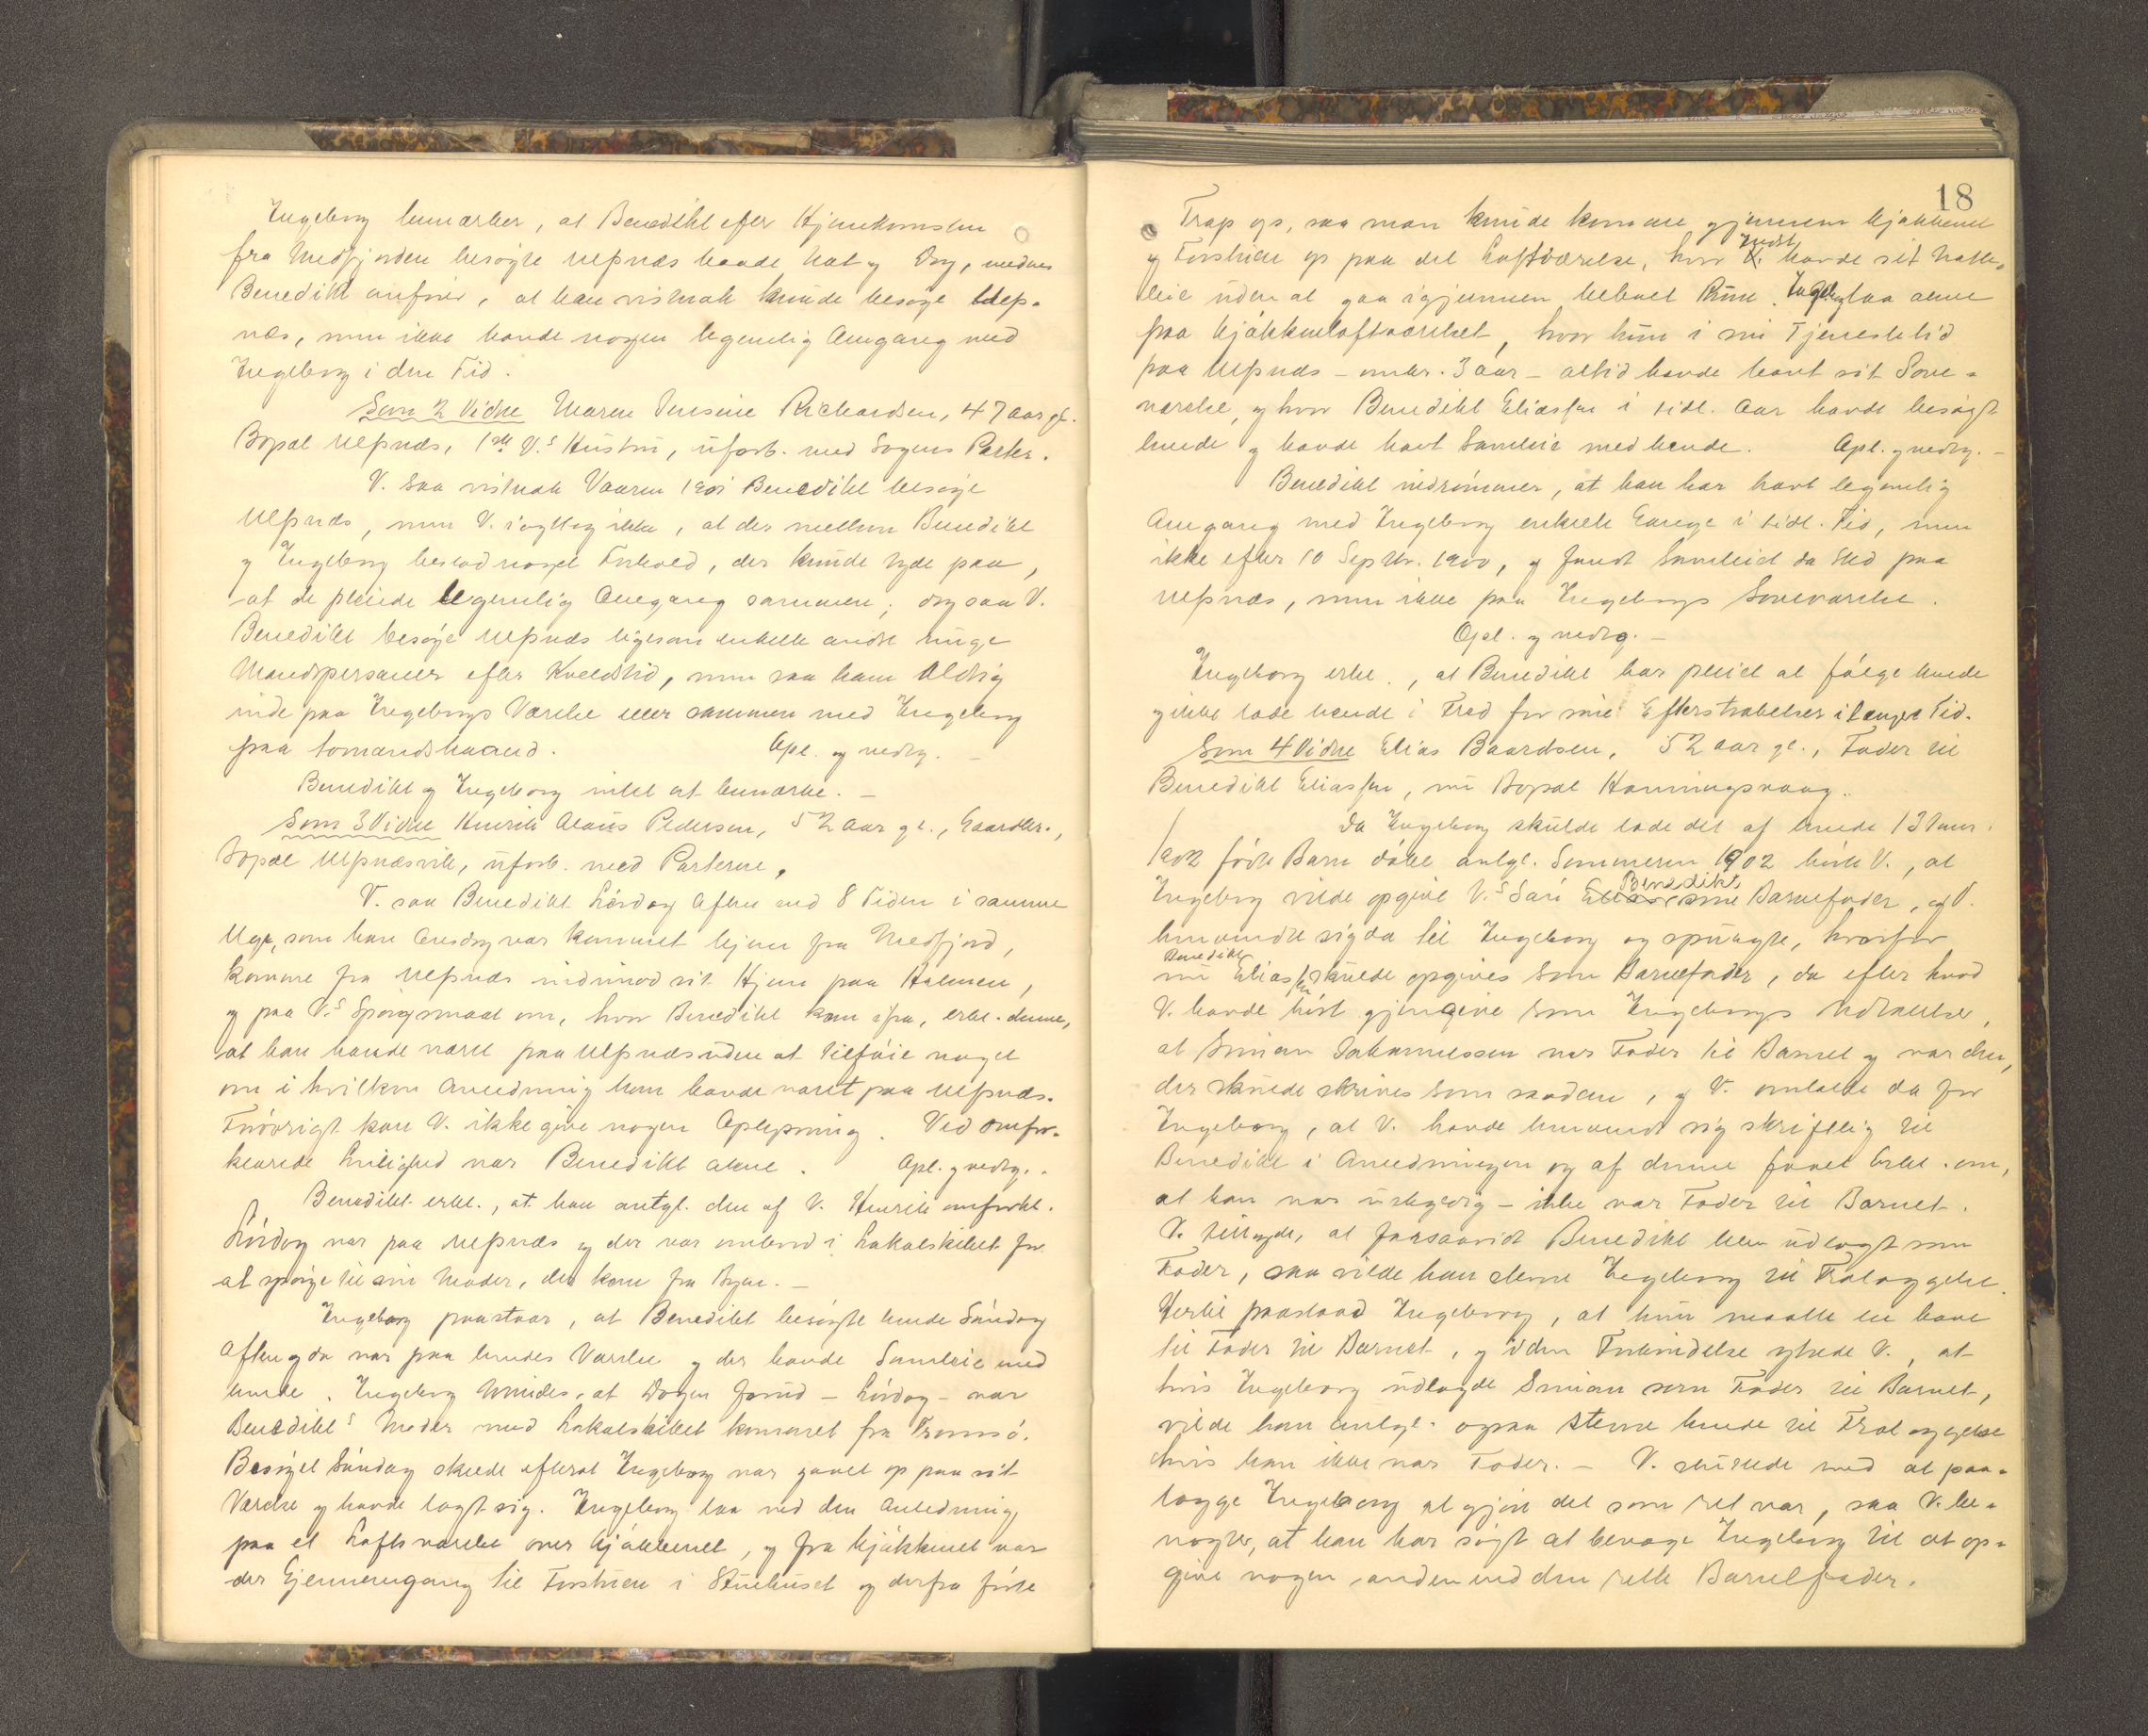 Ingeborg bemærker, at Benedikt efter Hjemkomsten
fra Medfjorden besøgte Ulpnæs baade Nat og Dag, medens
Benedikt anfører, at han vistnok kunde besøge Ulp-
næs, men ikke havde nogen legemlig Omgang med
Ingeborg i den Tid.
Som 2 Vidne Maren Jensine Richardsen, 47 aar gl.
Bopæl Ulpnæs, 1ste V.s Hustru, uforb. med Sagens Parter.
V. saa vistnok Vaaren 1901 Benedikt besøge
Ulpnæs, men V. iagttog ikke, at der mellem Benedikt
og Ingeborg bestod noget Forhold, der kunde tyde paa,
at de pleiede legemlig Omgang sammen; dog saa V.
Benedikt besøge Ulpnæs ligesom enkelte andre unge
Mandspersoner efter Kveldstid, men saa ham aldrig
inde paa Ingeborgs Værelse eller sammen med Ingeborg
paa tomandshaand. Opl. og vedtg. -
Benedikt og Ingeborg intet at bemærke. -
Som 3 Vidne Henrik Olaus Pedersen, 52 aar gl., Gaardbr.,
Bopæl Ulpnæsvik, uforb. med Parterne,
V. saa Benedikt Lørdag Aften ved 8 Tiden i samme
Uge, som han Onsdag var kommet hjem fra Medfjord,
komme fra Ulpnæs indimod sit Hjem paa Holmen,
og paa V.s Spørgsmaal om, hvor Benedikt kom ifra, erkl. denne,
at han havde været paa Ulpnæs uden at tilføie noget
om i hvilken Anledning han havde været paa Ulpnæs.
Forøvrigt kan V. ikke give nogen Oplysning. Ved omfor-
klarede Leilighed var Benedikt alene. Opl. og vedtg. -
Benedikt erkl., at han antgl. den af V. Henrik omforkl.
Lørdag var paa Ulpnæs og der var ombord i Lokalskibet for
at spørge til sin Moder, der kom fra Byen. -
Ingeborg paastaar, at Benedikt besøgte hende Søndag
Aften og da var paa hendes Værelse og der havde Samleie med
hende. Ingeborg mindes, at Dagen forud - Lørdag - var
Benedikts Moder med Lokalskibet kommet fra Tromsø.
Besøget Søndag skede efterat Ingeborg var gaaet op paa sit
Værelse og havde lagt sig. Ingeborg laa ved den Anledning
paa et Loftsværelse over Kjøkkenet, og fra Kjøkkenet var
der Gjennemgang til Forstuen i Stuehuset og derfra førte
18
Trap op, saa man kunde komme gjennem Kjøkkenet
og Forstuen op paa det Loftværelse, hvor Indst. havde sit Natte-
leie uden at gaa igjennem beboet Rum. Ingeborg laa alene
paa Kjøkkenloftværelset, hvor hun i sin Tjenestetid
paa Ulpnæs - omtr. 3 aar - altid havde havt sit Sove-
værelse, og hvor Benedikt Eliassen i tidl. Aar havde besøgt
hende og havde havt Samleie med hende. Opl. og vedtg. -
Benedikt indrømmer, at han har havt legemlig
Omgang med Ingeborg enkelte Gange i tidl. Tid, men
ikke efter 10 Septbr. 1900, og fandt Samleiet da Sted paa
Ulpnæs, men ikke paa Ingeborgs Soveværelse.
Opl. og vedtg. -
Ingeborg erkl., at Benedikt har pleiet at følge hende
og ikke lade hende i Fred for sine Efterstræbelser i længere Tid.
Som 4 Vidne Elias Baardsen, 52 aar gl., Fader til
Benedikt Eliassen, nu Bopæl Honningsvaag.
Da Ingeborg skulde lade det af hende 13 Januar
1902 fødte Barn døbe antgl. Sommeren 1902 hørte V., at
Ingeborg vilde opgive V.s Søn Benedikt som Barnefader, og V.
henvendte sig da til Ingeborg og spurgte, hvorfor
nu Benedikt Eliassen skulde opgives som Barnefader, da efter hvad
V. havde hørt gjengive som Ingeborgs Udtalelse,
at Simon Johannessen var Fader til Barnet og var den,
der skulde skrives som saadan, og V. omtalte da for
Ingeborg, at V. havde henvendt sig skriftlig til
Benedikt i Anledningen og af denne faaet Erkl. om,
at han var uskyldig - ikke var Fader til Barnet.
V. tilføyde, at forsaavidt Benedikt blev udlagt som
Fader, saa vilde han stevne Ingeborg til Fralæggelse.
Hertil paastod Ingeborg, at hun maatte en have
til Fader til Barnet, og i den Forbindelse ytrede V., at
hvis Ingeborg udlagde Simon som Fader til Barnet,
vilde han antgl. ogsaa stevne hende til Fralæggelse
hvis han ikke var Fader. - V. sluttede med at paa-
lægge Ingeborg at gjøre det som ret var, saa V. be-
nægter, at han har søgt at bevæge Ingeborg til at op-
give nogen anden end den rette Barnefader.